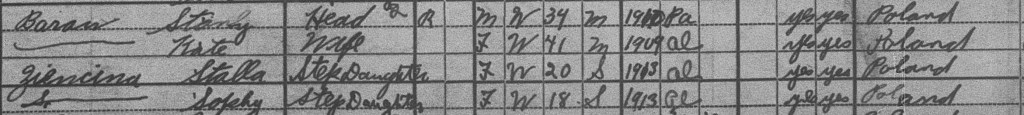 Baran Stanly Head R M W 34 M 1910 Pa yes yes Poland
Kate Wife F W 41 M 1909 al yes yes Poland
Ziencina Stalla Step Daughter F W 20 S 1913 al yes yes Poland
S. Sophy Step Daughter F W 18 S 1913 al yes yes Poland